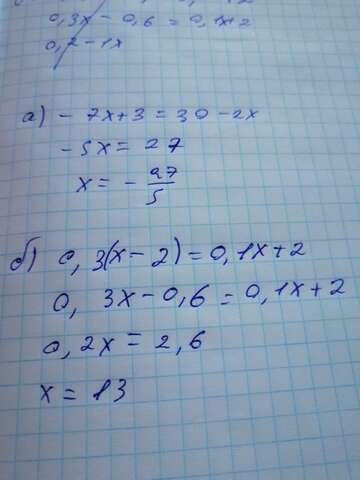 0,3x - 0,6 = 0,1x+2
0,2 - 1x
а) - 7x+3 = 30 - 2x
-5x = 27
x = - 27/5
б) 0,3(x - 2) = 0,1x+2
0,3x - 0,6 = 0,1x+2
0,2x = 2,6
x = 13